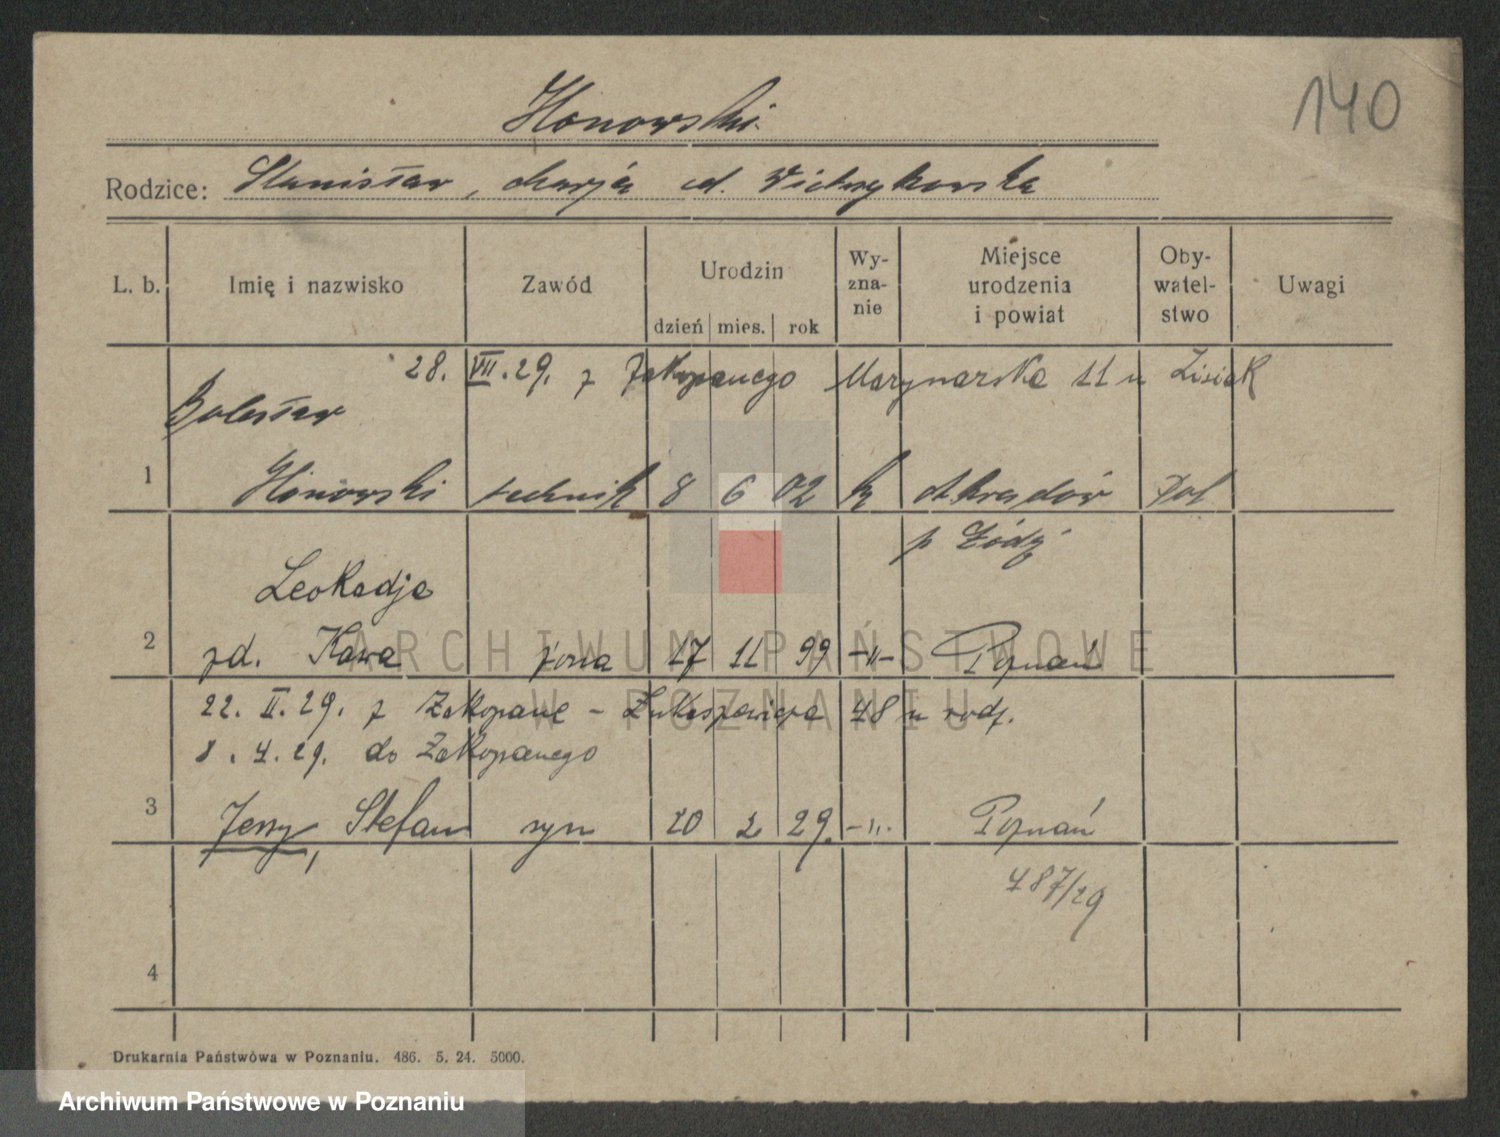 140
Honowski
Rodzice: Stanisław, Marja ud.
L. b. Imię i nazwisko Zawód Urodzin dzień mies. rok Wy-zna-nie Miejsce urodzenia i powiat Oby-watel-stwo Uwagi
28. VII. 29. z Zakopanego Marynarska 11 u Lisiak
Bolesław
1 Honowski technik 8 6 02 k pol
p Łódź
Leokadja
2 zd. Kawa żona 17 11 99 -„- Poznań
22. II. 29. z Zakopane - 48 u rodz.
8. 4. 29. do Zakopanego
3 Jerzy, Stefan syn 20 2 29. -„- Poznań
487/29
4
Drukarnia Państwówa w Poznaniu. 486. 5. 24. 5000.
ARCHIWUM PAŃSTWOWE
W POZNANIU
Archiwum Państwowe w Poznaniu